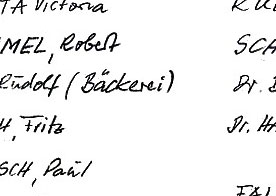 TA Victoria
MEL, Robert
Rudolf (Bäckerei)
H, Fritz
SCH, Paul
KÜ
SCH
Dr. B
Dr. H